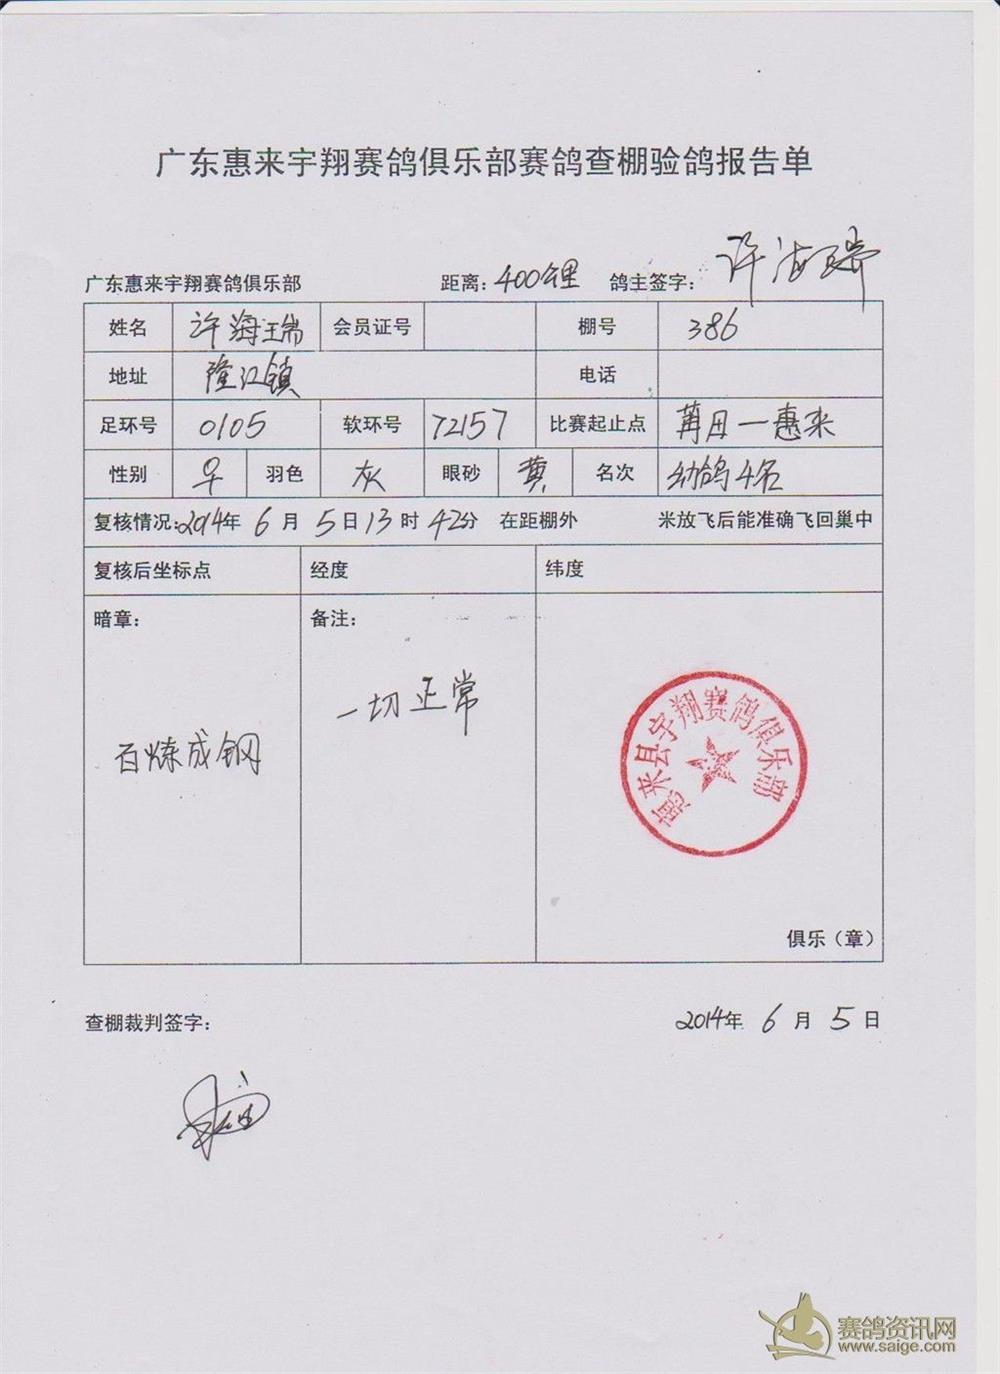 广东惠来宇翔赛鸽俱乐部赛鸽查棚验鸽报告单
广东惠来宇翔赛鸽俱乐部 距离：400公里 鸽主签字：许海瑞
姓名 许海瑞 会员证号 棚号 386
地址 隆江镇 电话
足环号 0105 软环号 72157 比赛起止点 莆田—惠来
性别 羽色 灰 眼砂 黄 名次 幼鸽4名
复核情况：2014年 6 月 5 日 13 时 42分 在距棚外 米放飞后能准确飞回巢中
复核后坐标点 经度 纬度
暗章： 备注：
一切正常
百炼成钢
惠来县宇翔赛鸽俱乐部
俱乐（章）
查棚裁判签字： 2014年 6 月 5 日
赛鸽资讯网
www.saige.com